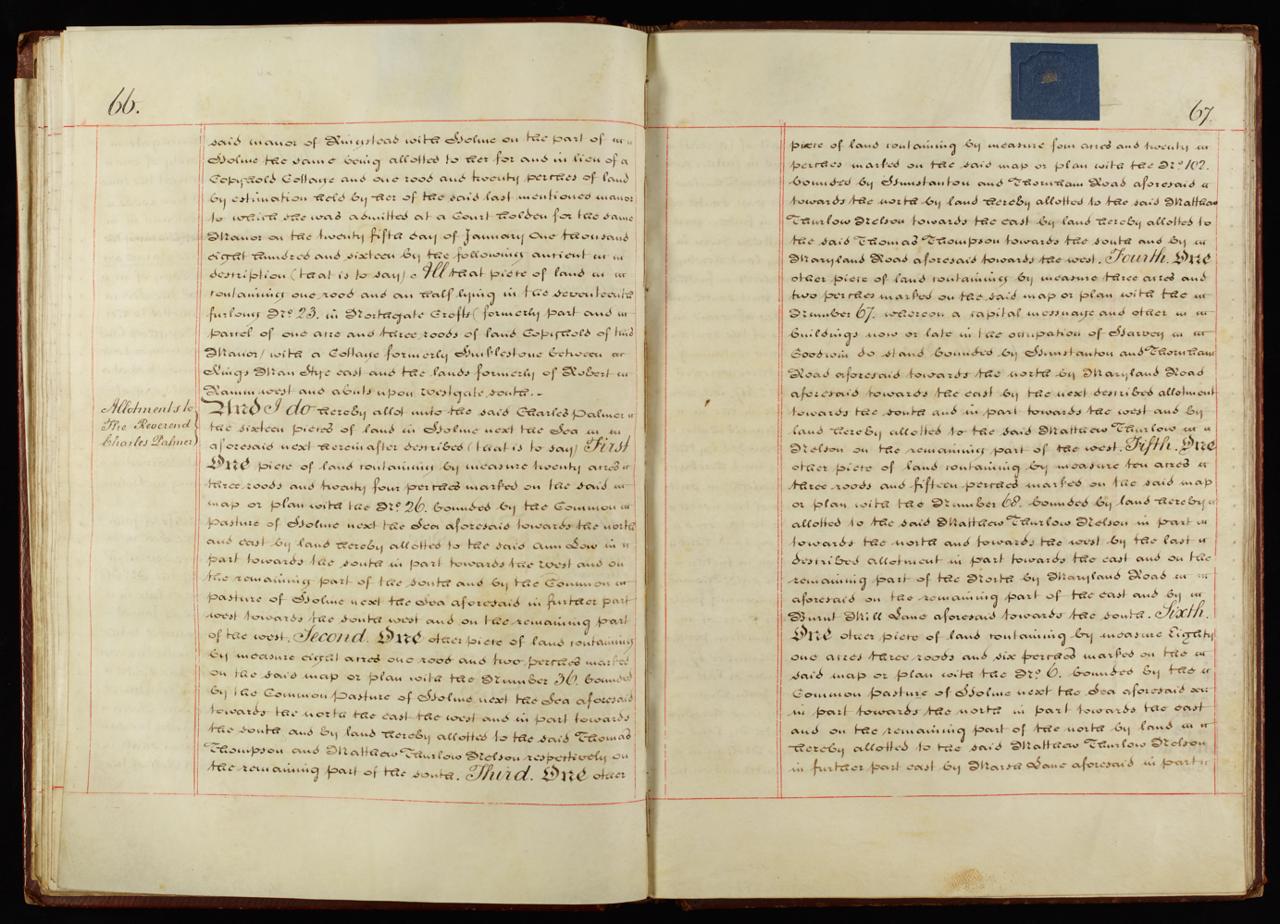 66.
said manor of Ringstead with Holme on the part of
Holme the same being allotted to her for and in lieu of a
Copyhold Cottage and one rood and twenty perches of land
by estimation held by her of the said last mentioned manor
to which she was admitted at a Court holden for the same
Manor on the twenty fifth day of January One thousand
eight hundred and sixteen by the following ancient
description (that is to say) All that piece of land
containing one rood and an half lying in the seventeenth
furlong No. 23. in Northgate Crofts (formerly part and
parcel of one acre and three roods of land Copyhold of this
Manor) with a Cottage formerly Hucklestone between
Kings Man Stye east and the lands formerly of Robert
Ramm west and abuts upon Westgate south.
Allotments to
The Reverend
Charles Palmer
And I do hereby allot unto the said Charles Palmer
the sixteen pieces of land in Holme next the Sea
aforesaid next hereinafter described (that is to say) First
One piece of land containing by measure twenty acres
three roods and twenty four perches marked on the said
map or plan with the No. 26. bounded by the Common
pasture of Holme next the Sea aforesaid towards the north
and east by land hereby allotted to the said Ann Dow in
part towards the south in part towards the west and on
the remaining part of the south and by the Common
pasture of Holme next the Sea aforesaid in further part
west towards the south west and on the remaining part
of the west. Second. One other piece of land containing
by measure eight acres one rood and two perches marked
on the said map or plan with the Number 36. bounded
by the Common Pasture of Holme next the Sea aforesaid
towards the north the east the west and in part towards
the south and by land hereby allotted to the said Thomas
Thompson and Matthew Thurlow Nelson respectively on
the remaining part of the south. Third. One other
67.
piece of land containing by measure four acres and twenty
perches marked on the said map or plan with the No. 102.
bounded by Hunstanton and Thornham Road aforesaid
towards the north by land hereby allotted to the said Matthew
Thurlow Nelson towards the east by land hereby allotted to
the said Thomas Thompson towards the south and by
Maryland Road aforesaid towards the west. Fourth. One
other piece of land containing by measure three acres and
two perches marked on the said map or plan with the
Number 67. whereon a capital messuage and other
buildings now or late in the occupation of Harvey
Goodwin do stand bounded by Hunstanton and Thornham
Road aforesaid towards the north by Maryland Road
aforesaid towards the east by the next described allotment
towards the south and in part towards the west and by
land hereby allotted to the said Matthew Thurlow
Nelson on the remaining part of the west. Fifth. One
other piece of land containing by measure ten acres
three roods and fifteen perches marked on the said map
or plan with the Number 68. bounded by land hereby
allotted to the said Matthew Thurlow Nelson in part
towards the north and towards the west by the last
described allotment in part towards the east and on the
remaining part of the North by Maryland Road
aforesaid on the remaining part of the east and by
Burnt Mill Lane aforesaid towards the south. Sixth.
One other piece of land containing by measure Eighty
one acres three roods and six perches marked on the
said map or plan with the No. 6. bounded by the
Common pasture of Holme next the Sea aforesaid
in part towards the north in part towards the east
and on the remaining part of the north by land
hereby allotted to the said Matthew Thurlow Nelson
in further part east by Marsh Lane aforesaid in part